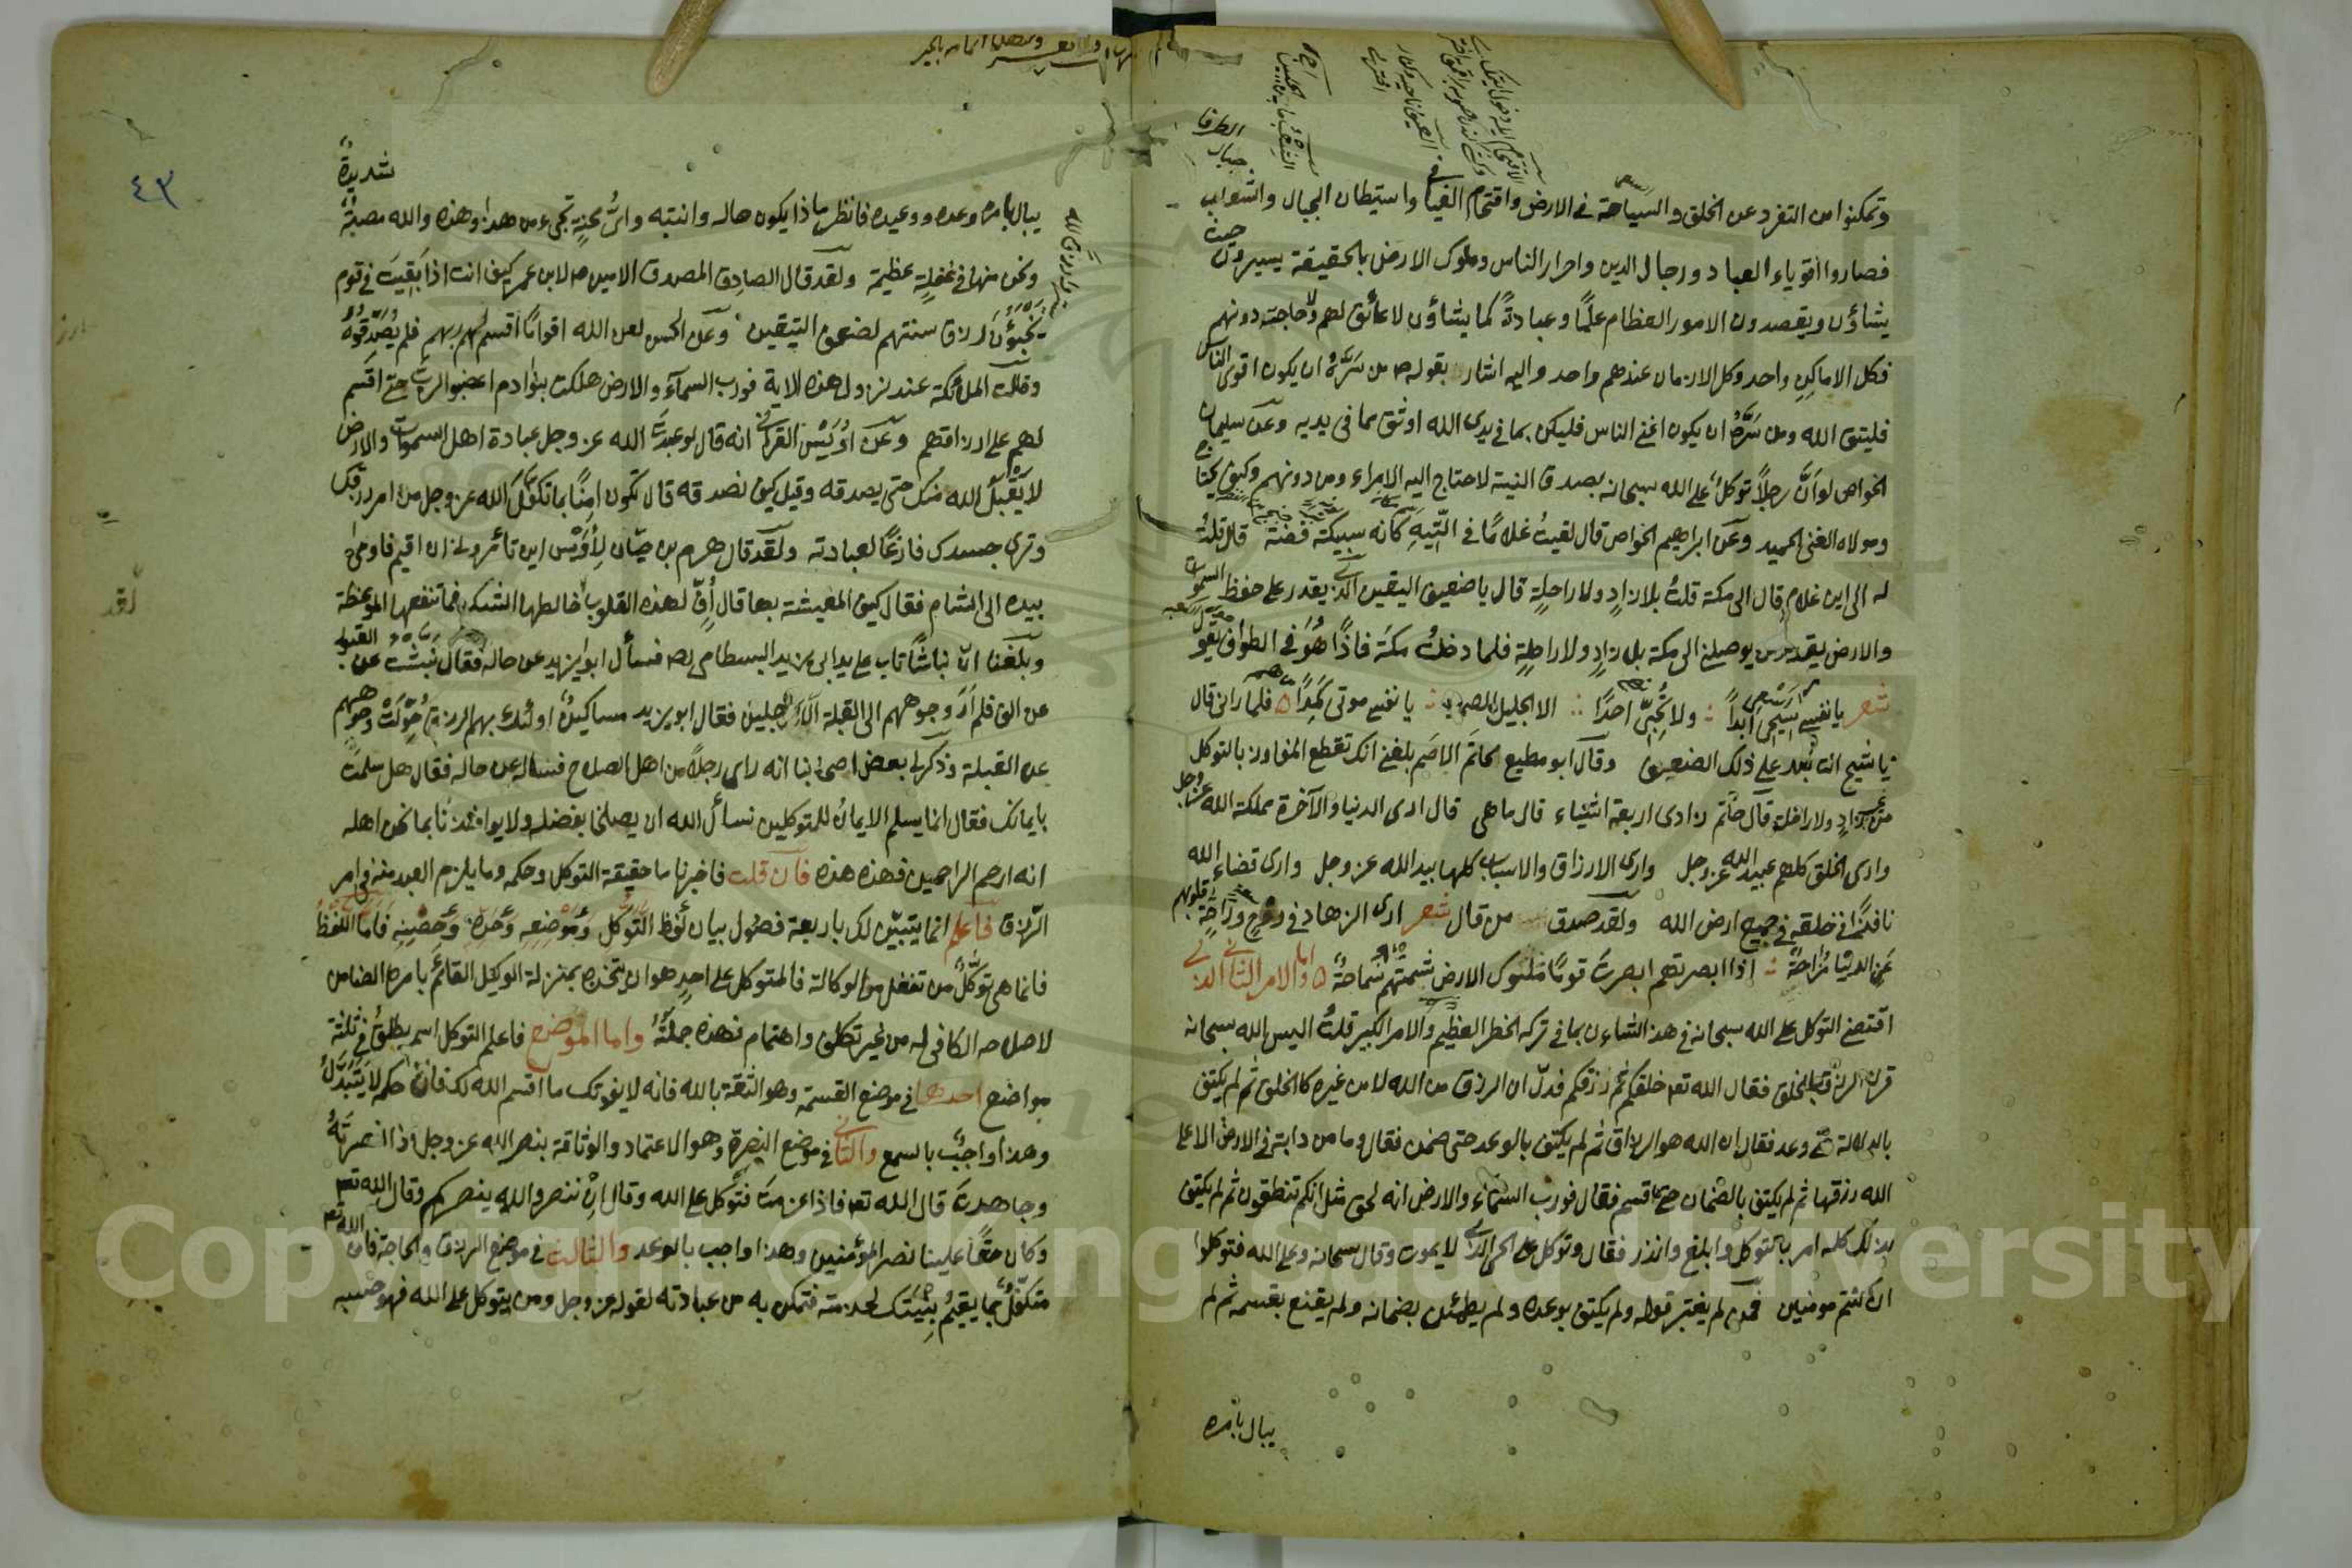 وتمكنوا من التفرد عن الخلق والسياحة في الارض واقتحام الفيافى واستيطان الجبال والشعاب
فصاروا اقوياء العباد ورجال الدين واحرار الناس وملوك الارض بالحقيقة يسيرون حيث
يشاؤن ويقصدون الامور العظام علمًا وعبادةً كما يشاؤن لا عائق لهم ولا حاجة دونهم
فكل الاماكن واحد وكل الازمان عندهم واحد واليه اشار بقوله ص من سَرَّهُ ان يكون اقوى الناس
فليتق الله ومن سَرَّهُ ان يكون اغنى الناس فليكن بما في يدى الله اوثق مما فى يديه وعن سليمان
الخواص لو اَنَّ رجلاً توكل على الله سبحانه بصدق النية لاحتاج اليه الامراء ومن دونهم وكيف يحتاج
ومولاه الغنى الحميد وعن ابراهيم الخواص قال لقيتُ غلامًا في التِّيهِ كانه سبيكة فضة قال قلتُ
له الى اين غلام قال الى مكة قلتُ بلا زادٍ ولا راحلةٍ قال يا ضعيف اليقين الذى يقدر على حفظ السموات
والارض يقدر يوصلنى الى مكة بلا زادٍ ولا راحلةٍ فلما دخلتُ مكة فاذًا هُوَ في الطواف يقول
شعر يا نفس سيحى ابداً ولا تُحِبّى احدًا الا الجليل الصمدا يا نفس موتى كَمَدًا فلما رانى قال
يا شيخ انت بعد على ذلك الضعيف وقال ابو مطيع لحاتم الاصم بلغنى انك تقطع المفاوز بالتوكل
من غير زادٍ ولا راحلة قال حاتم زادى اربعة اشياء قال ما هى قال ارى الدنيا والآخرة مملكة الله عز وجل
وارى الخلق كلهم عبيد الله عز وجل وارى الارزاق والاسباب كلها بيد الله عز وجل وارى قضاء الله
نافذًا في خلقه في جميع ارض الله ولقد صدق من قال شعر ارى الزهاد في روح وراحة قلوبهم
عن الدنيا مُزَاحةٌ اذا ابصرتهم ابصرت قومًا ملوك الارض شيمتهم سماحةٌ واما الامر الثانى الذى
اقتضى التوكل على الله سبحانه في هذا الشاءن بما في تركه الخطر العظيم والامر الكبير قلتُ اليس الله سبحانه
قرن الرزق بالخلق فقال الله تعه خلقكم ثم رزقكم فدلّ ان الرزق من الله لا من غيره كالخلق ثم لم يكتف
بالدلالة حتى وعد فقال ان الله هو الرزاق ثم لم يكتف بالوعد حتى ضمن فقال وما من دابة في الارض الا على
الله رزقها ثم لم يكتف بالضمان حتى اقسم فقال فورب السمآء والارض انه لحق مثل انكم تنطقون ثم لم يكتف
بذلك كله امر بالتوكل وابلغ وانذر فقال وتوكل على الحى الذى لا يموت وقال سبحانه وعلى الله فتوكلوا
ان كنتم مومنين فمن لم يعتبر قوله ولم يكتف بوعده ولم يطمئن بضمانه ولم يقنع بقسمه ثم لم
يبال بامره
٤٣
يبال بامره وعده ووعيده فانظر ماذا يكون حاله وانتبه واىُّ محنةٍ تجىء من هذا وهذه والله مصيبةٌ شديدةٌ
ونحن منها في غفلةٍ عظيمة ولقد قال الصادق المصدق الامين ص لابن عمر كيف انت اذا بَقِيتَ في قوم
يُخَبِّؤُنَ رزق سنتهم لضعف اليقين وعن الحسن لعن الله اقوامًا اقسم لهم ربهم فلم يُصَدِّقوهُ
وقالت الملئكة عند نزول هذه الاية فورب السمآء والارض هلكت بنوادم اغضبوا الرب حتى اقسم
لهم على ارزاقهم وعن اُوَيْس القرنى انه قال لو عبدت الله عز وجل عبادة اهل السموات والارض
لا يَقْبَلُ الله منك حتى يصدقه وقيل كيف نصدقه قال تكون امِنًا بما تكفّل الله عز وجل من امر رزقك
وترى جسدك فارغًا لعبادته ولقد قال هرم بن حيّان لِأُوَيْس اين تأمرونى ان اقيم فاومى
بيده الى الشام فقال كيف المعيشة بها قال أُفٍّ لهذه القلوب خالطها الشك فما تنفعها الموعظة
وبلغنا انّ نباشًا تاب على يد ابى يزيد البسطامى فسأل ابو يزيد عن حاله فقال نَبَشْتُ عن القبور
عن الف فلم اَرَ وجوههم الى القبلة الا رجلين فقال ابو يزيد مساكين اولئك بهم الرزق حُوِّلَتْ وجوههم
عن القبلة وذكر لى بعض اصحابنا انه راى رجلاً من اهل الصلاح فساله عن حاله فقال هل سلمت
بايمانك فقال انما يسلم الايمانُ للمتوكلين نسأل الله ان يصلحنا بفضله ولا يواخذنا بما نحن اهله
انه ارحم الراحمين فهذه هذه فان قلت فاخبرنا ما حقيقة التوكل وحكمه وما يلزم العبد منه في امر
الرّزق فاعلم انما يتبيّن لك باربعة فصول بيان لَفظ التَّوَكُّل وَمَوْضِعِهِ وَحَدِّهِ وَحِصْنِهِ فَاَمّا اللّفظُ
فانما هى تَوَكُّلٌ من تفعّل من الوكالة فالمتوكل على احدٍ هو ان يتخذه بمنزلة الوكيل القائم بامره الضامن
لاصلاحه الكافى له من غير تكلف واهتمام فهذه جملتُهُ واما الموضع فاعلم التوكل اسم يطلق في ثلثة
مواضع احدها في موضع القسمة وهو الثقة بالله فانه لا يفوتك ما اقسم الله لك فان حكمه لا يَتَبَدَّلُ
وهذا واجبٌ بالسمع والثانى في موضع النصرة وهو الاعتماد والوثاقة بنصر الله عز وجل اذا نصرتَهُ
وجاهدتَ قال الله تعه فاذا عزمت فتوكل على الله وقال اِنْ تنصروا الله ينصركم وقال الله تعه
وكان حقًا علينا نصر المؤمنين وهذا واجب بالوعد والثالث في موضع الرزق والحاجة فان الله تعه
متكفّلٌ بما يقيمُ بِنْيَتَك لخدمته فتمكن به من عبادته لقوله عز وجل ومن يتوكل على الله فهو حسبه
Copyright © King Saud University